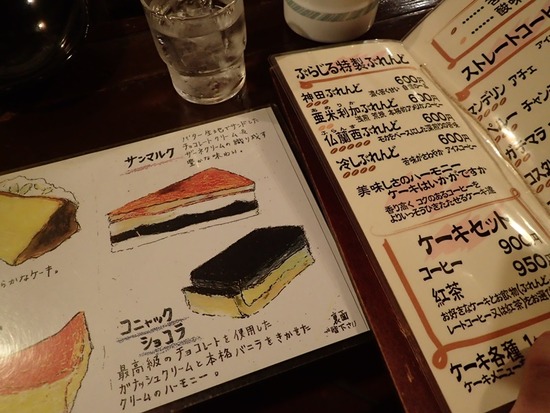 サンマルク
チョコレートクリームと
豊かな味わい。
らかなケーキ。
コニャック
ショコラ
最高級のチョコレートを使用した
ガナッシュクリームと本格バニラをきかせた
クリームのハーモニー。
裏面
ぶらじる特製ぶれんど
神田ぶれんど 600円
亜米利加ぶれんど 630円
仏蘭西ぶれんど 600円
冷しぶれんど 600円
苦味さわやか アイスコーヒー
美味しさのハーモニー
ケーキはいかがですか
香り高く、コクのあるコーヒーを
よりいっそうひきたたせるケーキ達
ケーキセット
コーヒー 900円
紅茶 950円
お好きなケーキとお飲物(ぶれんど
レートコーヒー又は紅茶)をお選び
ケーキ各種
ケーキメニュー
酸味
ストレートコーヒ
アイ
マンデリン アチェ
ベリー チャン
ガテマラ
コスタ